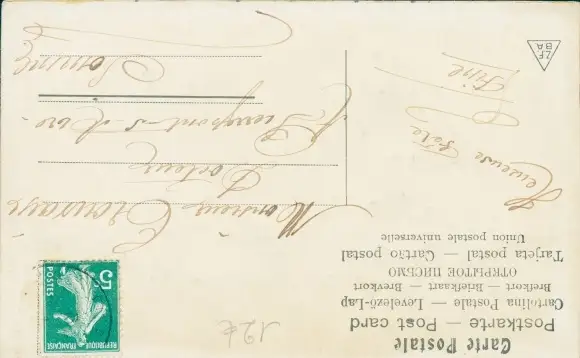 Carte Postale
Postkarte — Post card
Cartolina Postale — Levelező-Lap
Brefkort — Briefkaart — Brevkort
ОТКРЫТОЕ ПИСЬМО
Tarjeta postal — Cartão postal
Union postale universelle
Heureuse Fête
Monsieur
Docteur
Pierrepont-s-Avre
Somme
REPUBLIQUE FRANÇAISE
5c
POSTES
12€